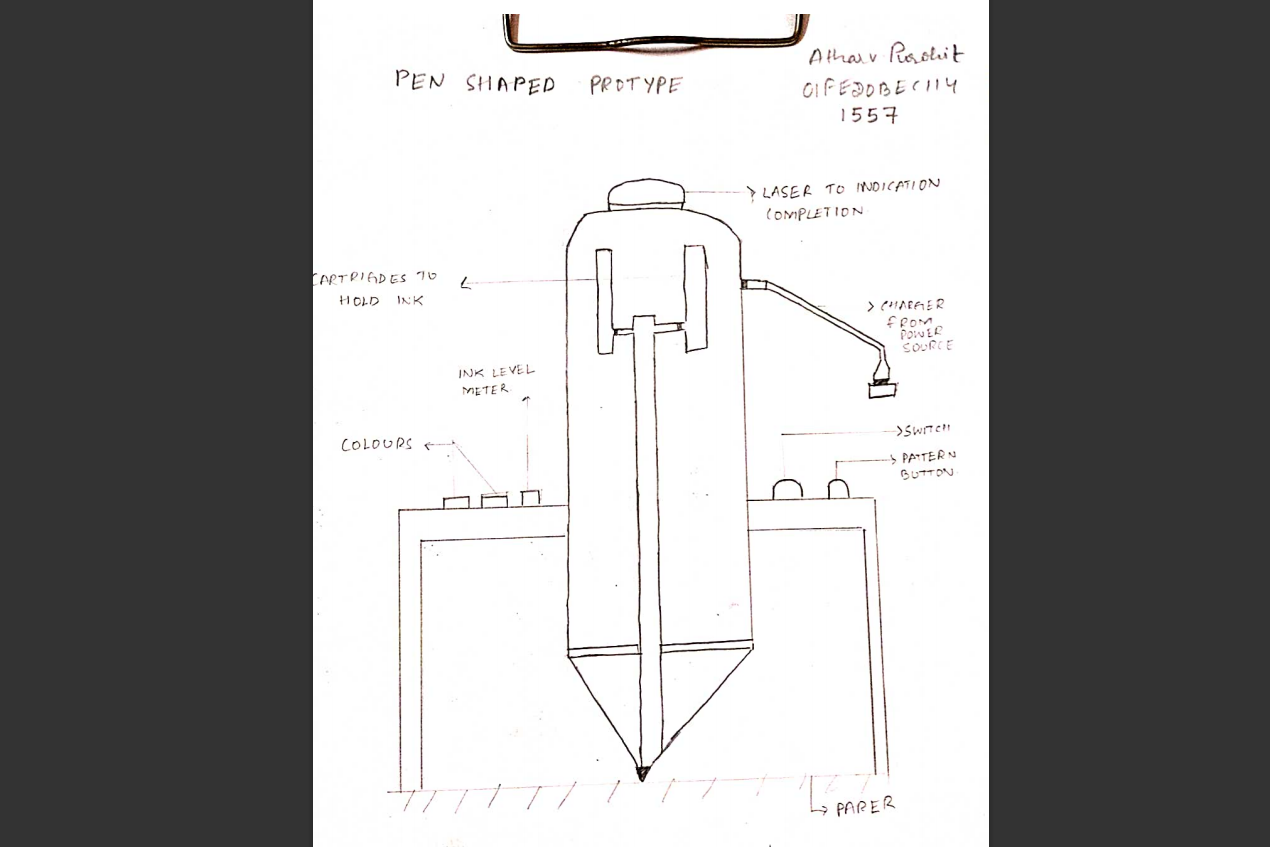 Atharv Purohit
PEN SHAPED PROTYPE
01FE20BEC114
1557
LASER TO INDICATION
COMPLETION
CARTRIGDES TO
HOLD INK
CHARGER
FROM
POWER
SOURCE
INK LEVEL
METER
COLOURS
SWITCH
PATTERN
BUTTON
PAPER